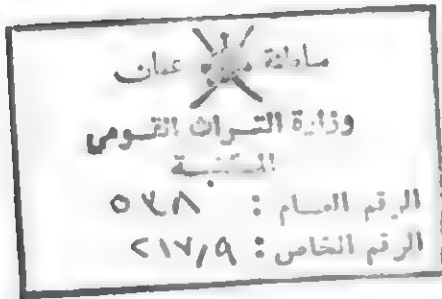 سلطنة عمان
وزارة التراث القومي
المكتبة
الرقم العام :
الرقم الخاص : ٢١٧,٩